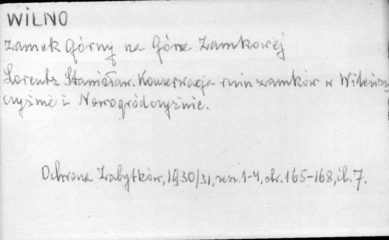 WILNO
Zamek Górny na Górze Zamkowej
Lorentz Stanisław. Konserwacja ruin zamków w Wileńsz-
czyźnie i Nowogródczyźnie.
Ochrona Zabytków, 1930/31, zesz. 1-4, str. 165-168, il. 7.